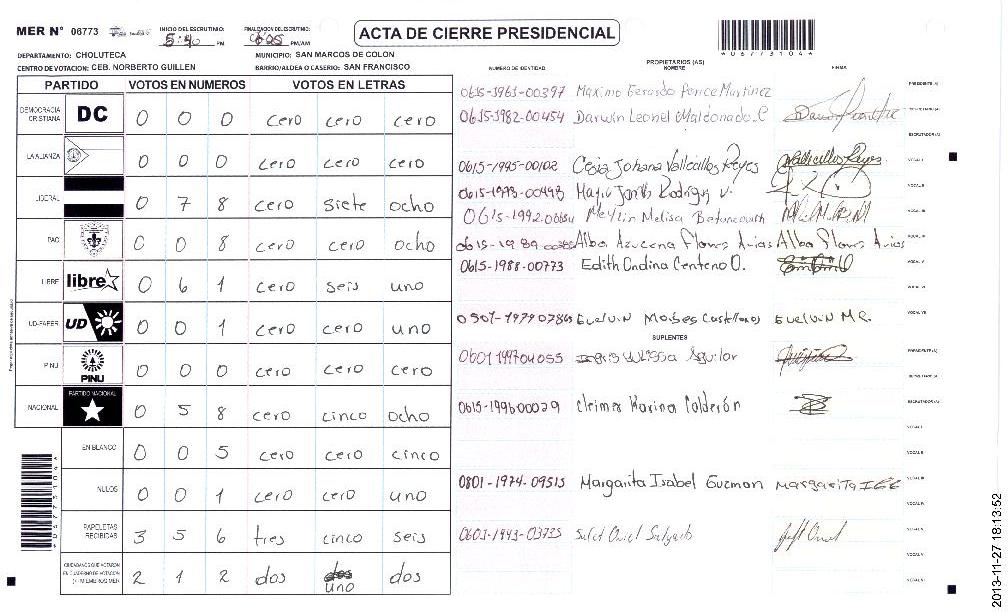 MER N° 06773
INICIO DEL ESCRUTINIO: 5:40 PM
FINALIZACION DEL ESCRUTINIO: PM/AM
ACTA DE CIERRE PRESIDENCIAL
*06773104*
DEPARTAMENTO: CHOLUTECA
MUNICIPIO: SAN MARCOS DE COLON
CENTRO DE VOTACION: CEB. NORBERTO GUILLEN
BARRIO/ALDEA O CASERIO: SAN FRANCISCO
PARTIDO VOTOS EN NUMEROS VOTOS EN LETRAS
DEMOCRACIA CRISTIANA DC 0 0 0 cero cero cero
LA ALIANZA 0 0 0 cero cero cero
LIBERAL 0 7 8 cero siete ocho
PAC 0 0 8 cero cero ocho
LIBRE libre 0 6 1 cero seis uno
UD-FAPER UD 0 0 1 cero cero uno
PINU PINU 0 0 0 cero cero cero
NACIONAL PARTIDO NACIONAL 0 5 8 cero cinco ocho
EN BLANCO 0 0 5 cero cero cinco
NULOS 0 0 1 cero cero uno
PAPELETAS RECIBIDAS 3 5 6 tres cinco seis
CIUDADANOS QUE VOTARON EN CUADERNO DE VOTACION 2 1 2 dos dos uno dos
NUMERO DE IDENTIDAD
PROPIETARIOS (AS)
NOMBRE
FIRMA
0615-1963-00397 Maximo Gerardo Ponce Martinez PRESIDENTE(A)
0615-1982-00454 Darwin Leonel Maldonado. C SECRETARIO(A)
ESCRUTADOR(A)
0615-1995-00102 Cesia Johana Vallecillos Reyes Vallecillos Reyes VOCAL I
0615-1973-00498 VOCAL II
0615-1992 Meylin Melisa Betancourth VOCAL III
0615-1989 Alba Azucena Flores Arias Alba Flores Arias
0615-1988-00773 Edith Ondina Centeno O. VOCAL V
VOCAL VI
Evelvin Moises Castellanos Evelvin M.C. VOCAL VII
SUPLENTES
0601 199704055 Aguilar PRESIDENTE(A)
SECRETARIO(A)
0615-199600029 Cleimer Karina Calderón ESCRUTADOR(A)
VOCAL I
VOCAL II
0801-1974-09515 Margarita Isabel Guzman Margarita VOCAL III
VOCAL IV
0603-1943-03735 Salgado VOCAL V
VOCAL VI
2013-11-27 18:13:52